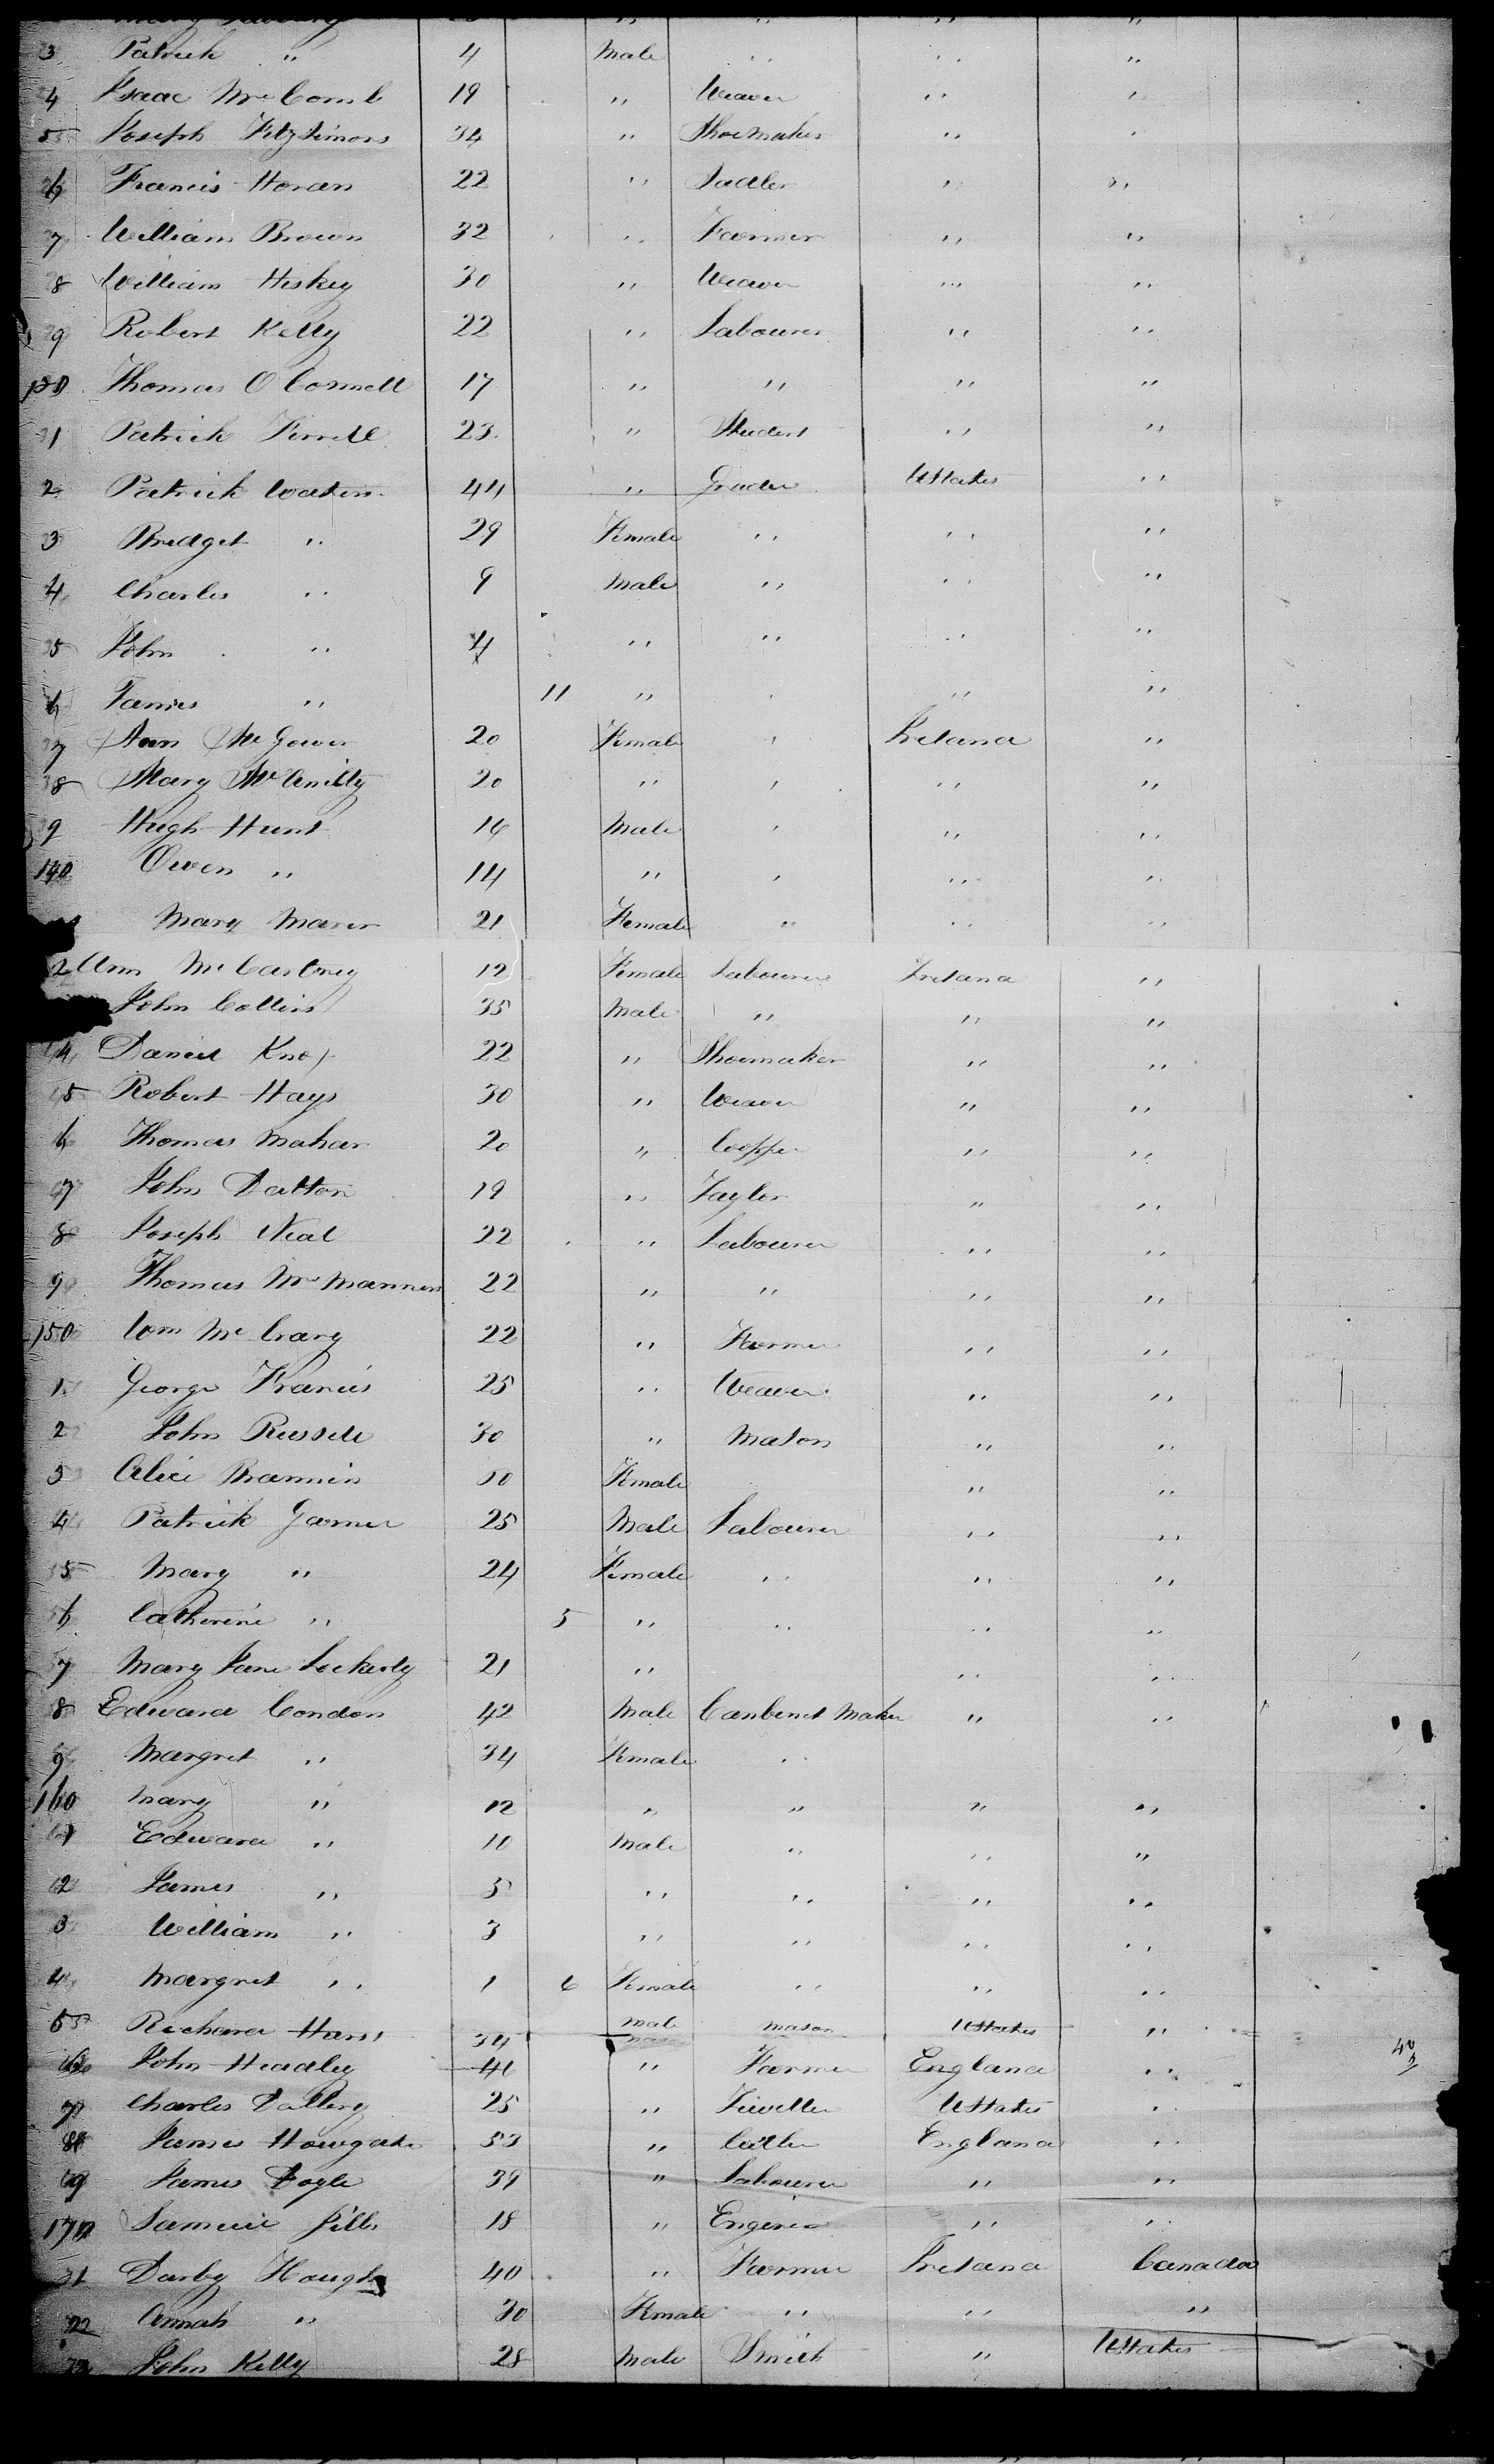 3 Patrick " 4 Male " " "
4 Isaac McComb 19 " Weaver " "
5 Joseph Fitzsimons 34 " Shoemaker " "
6 Francis Horan 22 " Sadler " "
7 William Brown 32 " Farmer " "
8 William Hiskey 30 " Weaver " "
9 Robert Kelly 22 " Labourer " "
130 Thomas O Connell 17 " " " "
1 Patrick Ferrell 23 " Student " "
2 Patrick 44 " UStates "
3 Bridget " 29 Female " " "
4 Charles " 9 Male " " "
5 John " 4 " " " "
6 James " 11 " " " "
7 Ann McGower 20 Female " Ireland "
8 Mary 20 " " " "
9 Hugh Hunt 16 Male " " "
140 Owen " 14 " " " "
Mary 21 Female " " "
2 Ann McCartney 12 Female Labourer Ireland "
John Collins 35 Male " " "
4 Daniel Knox 22 " Shoemaker " "
5 Robert Hays 30 " Weaver " "
6 Thomas Mahar 20 " Copper " "
7 John Dalton 19 " Taylor " "
8 Joseph Neal 22 " Labourer " "
9 Thomas McMannen 22 " " " "
150 Wm McCrary 22 " Farmer " "
1 George Francis 25 " Weaver " "
2 John Russell 30 " Mason " "
3 Alice Brannin 50 Female " "
4 Patrick Garner 25 Male Labourer " "
5 Mary " 24 Female " " "
6 Catherine " 5 " " " "
7 Mary Jane Lockerty 21 " " "
8 Edward Condon 42 Male Canbenet Maker " "
9 Margret " 34 Female "
160 Mary " 12 " " " "
61 Edward " 10 Male " " "
62 James " 5 " " " "
3 William " 3 " " " "
4 Margret " 1 6 Female " " "
65 Richard 34 Male Mason UStates "
66 John Headley 46 " Farmer England "
7 Charles 25 " Jiweller UStates "
8 James Howgate 53 " Cutler England "
69 James Boyle 39 " Labourer " "
170 Samuel 18 " " "
71 Darby Hough 40 " Farmer Ireland Canada
72 Annah " 30 Female " " "
John Kelly 28 Male Smith " UStates